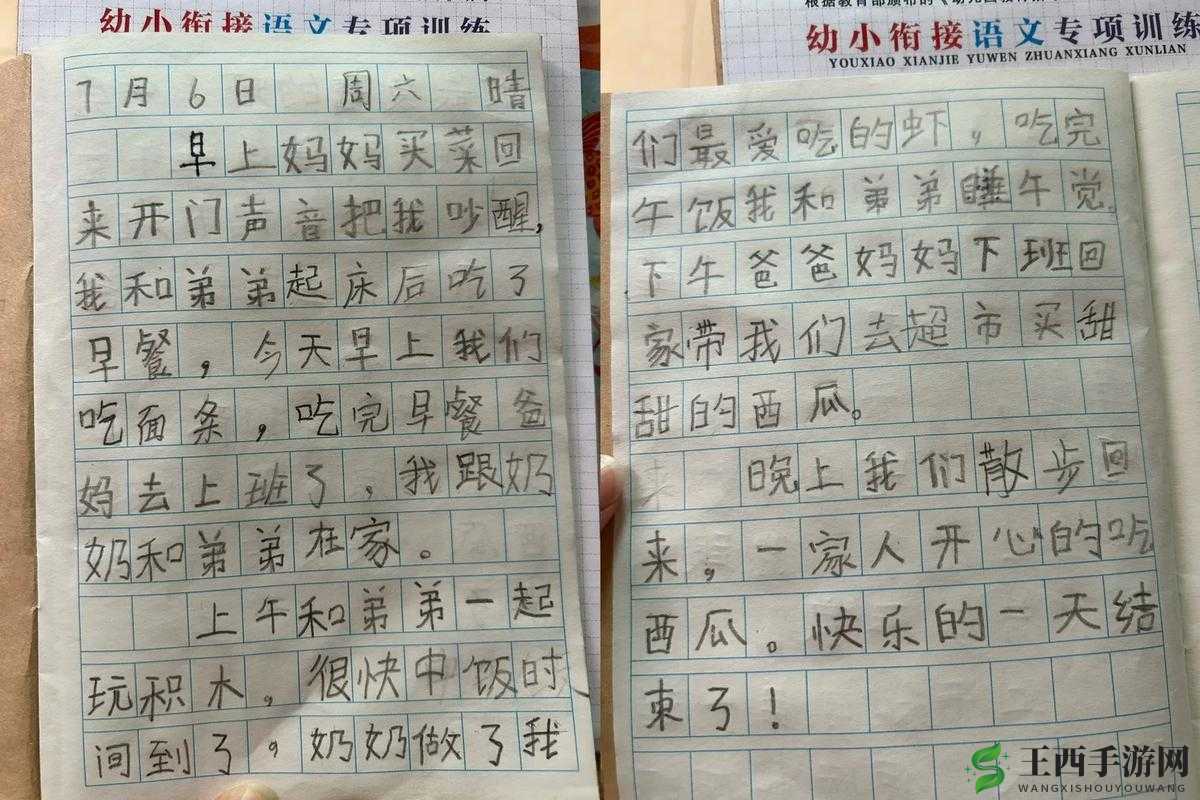 幼小衔接语文专项训练
7月6日 周六 晴
早上妈妈买菜回
来开门声音把我吵醒,
我和弟弟起床后吃了
早餐，今天早上我们
吃面条，吃完早餐爸
妈去上班了，我跟奶
奶和弟弟在家。
上午和弟弟一起
玩积木，很快中饭时
间到了。奶奶做了我
根据教育部颁布的
幼小衔接语文专项训练
YOUXIAO XIANJIE YUWEN ZHUANXIANG XUNLIAN
们最爱吃的虾，吃完
午饭我和弟弟睡午觉。
下午爸爸妈妈下班回
家带我们去超市买甜
甜的西瓜。
晚上我们散步回
来，一家人开心的吃
西瓜。快乐的一天结
束了！
王西手游网
WANGXISHOUYOUWANG